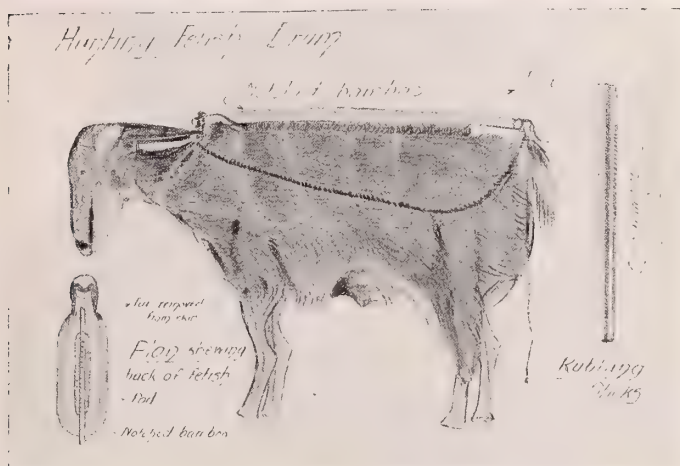 Hunting Fetish
Notched bamboo
• Fur removed
from skin
Fig 2 showing
back of fetish
- Rod
- Notched bamboo
Rubbing
Sticks